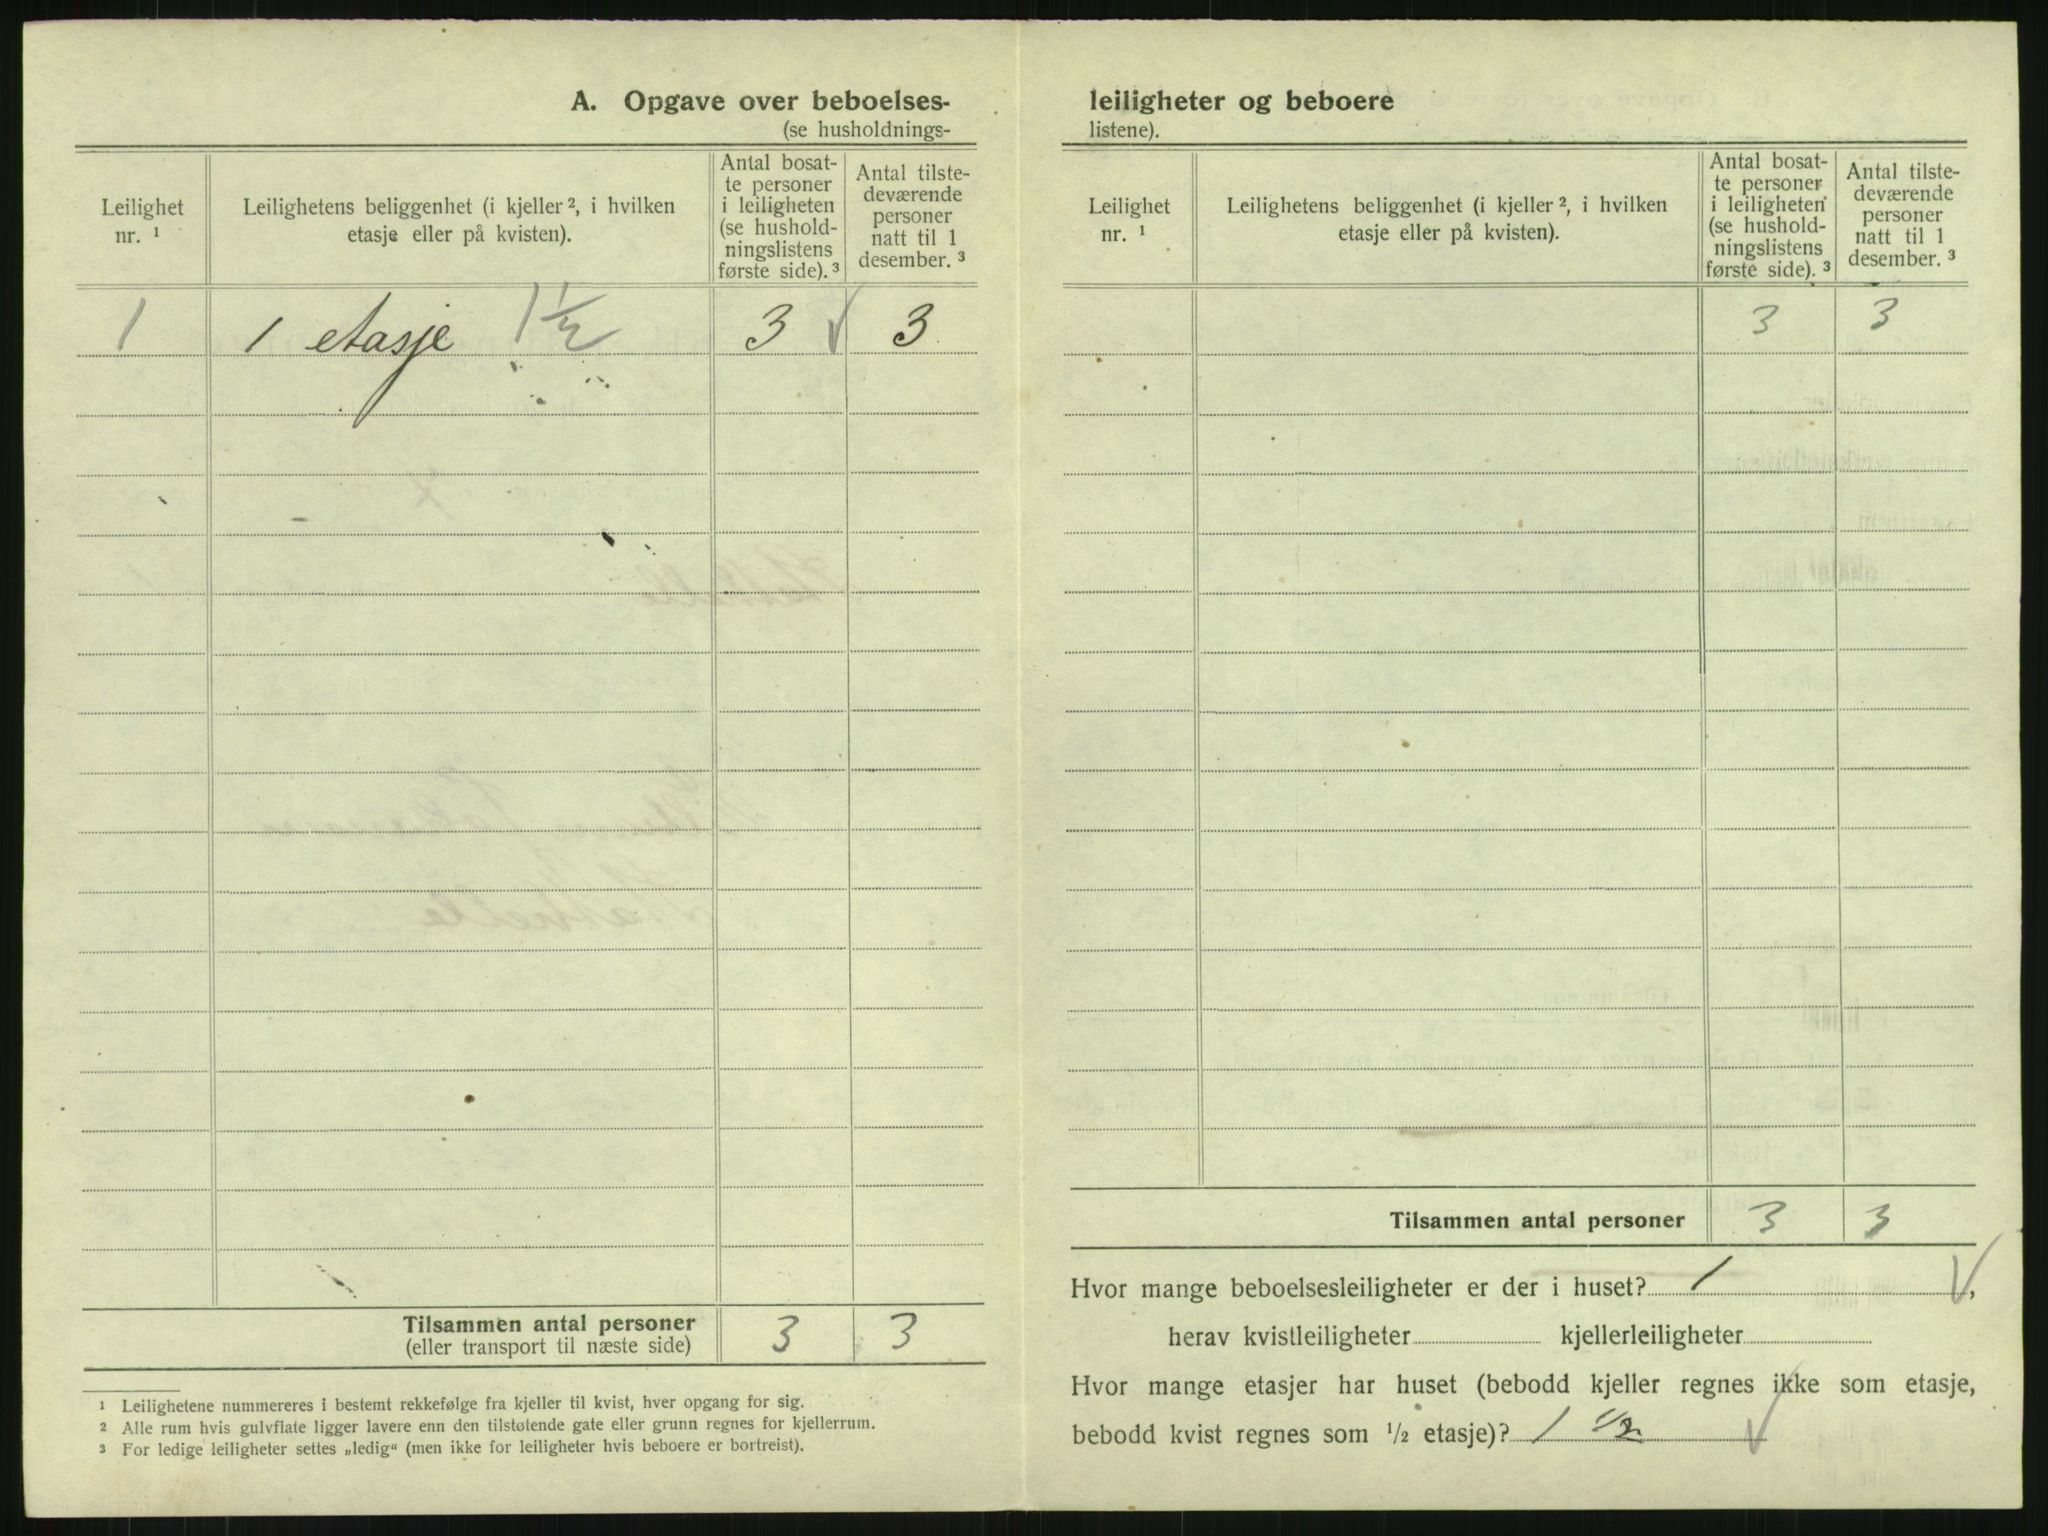 A. Opgave over beboelses-
(se husholdnings-
Leilighet nr. ¹
Leilighetens beliggenhet (i kjeller ², i hvilken
etasje eller på kvisten).
Antal bosat-
te personer
i leiligheten
(se hushold-
ningslistens
første side). ³
Antal tilste-
deværende
personer
natt til 1
desember. ³
1 1 etasje 1 1/2 3 3
Tilsammen antal personer 3 3
(eller transport til næste side)
¹ Leilighetene nummereres i bestemt rekkefølge fra kjeller til kvist, hver opgang for sig.
² Alle rum hvis gulvflate ligger lavere enn den tilstøtende gate eller grunn regnes for kjellerrum.
³ For ledige leiligheter settes „ledig“ (men ikke for leiligheter hvis beboere er bortreist).
leiligheter og beboere
listene).
Leilighet nr. ¹
Leilighetens beliggenhet (i kjeller ², i hvilken
etasje eller på kvisten).
Antal bosat-
te personer
i leiligheten
(se hushold-
ningslistens
første side). ³
Antal tilste-
deværende
personer
natt til 1
desember. ³
3 3
Tilsammen antal personer 3 3
Hvor mange beboelsesleiligheter er der i huset? 1 ,
herav kvistleiligheter kjellerleiligheter
Hvor mange etasjer har huset (bebodd kjeller regnes ikke som etasje,
bebodd kvist regnes som 1/2 etasje)? 1 1/2